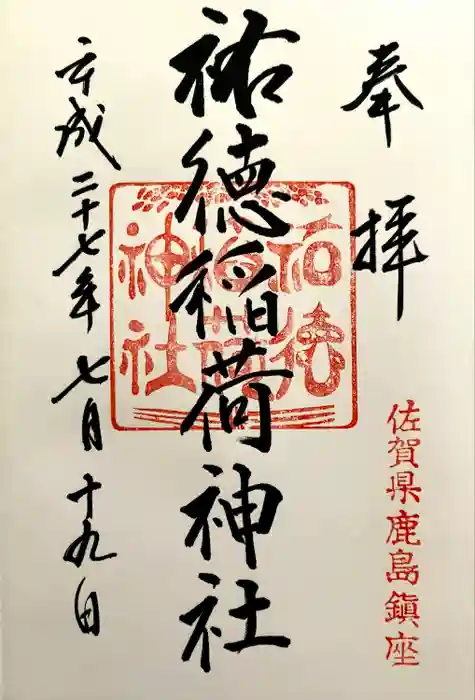 奉拝
佐賀県鹿島鎮座
祐徳稲荷神社
祐徳稲荷神社
平成二十七年七月十九日